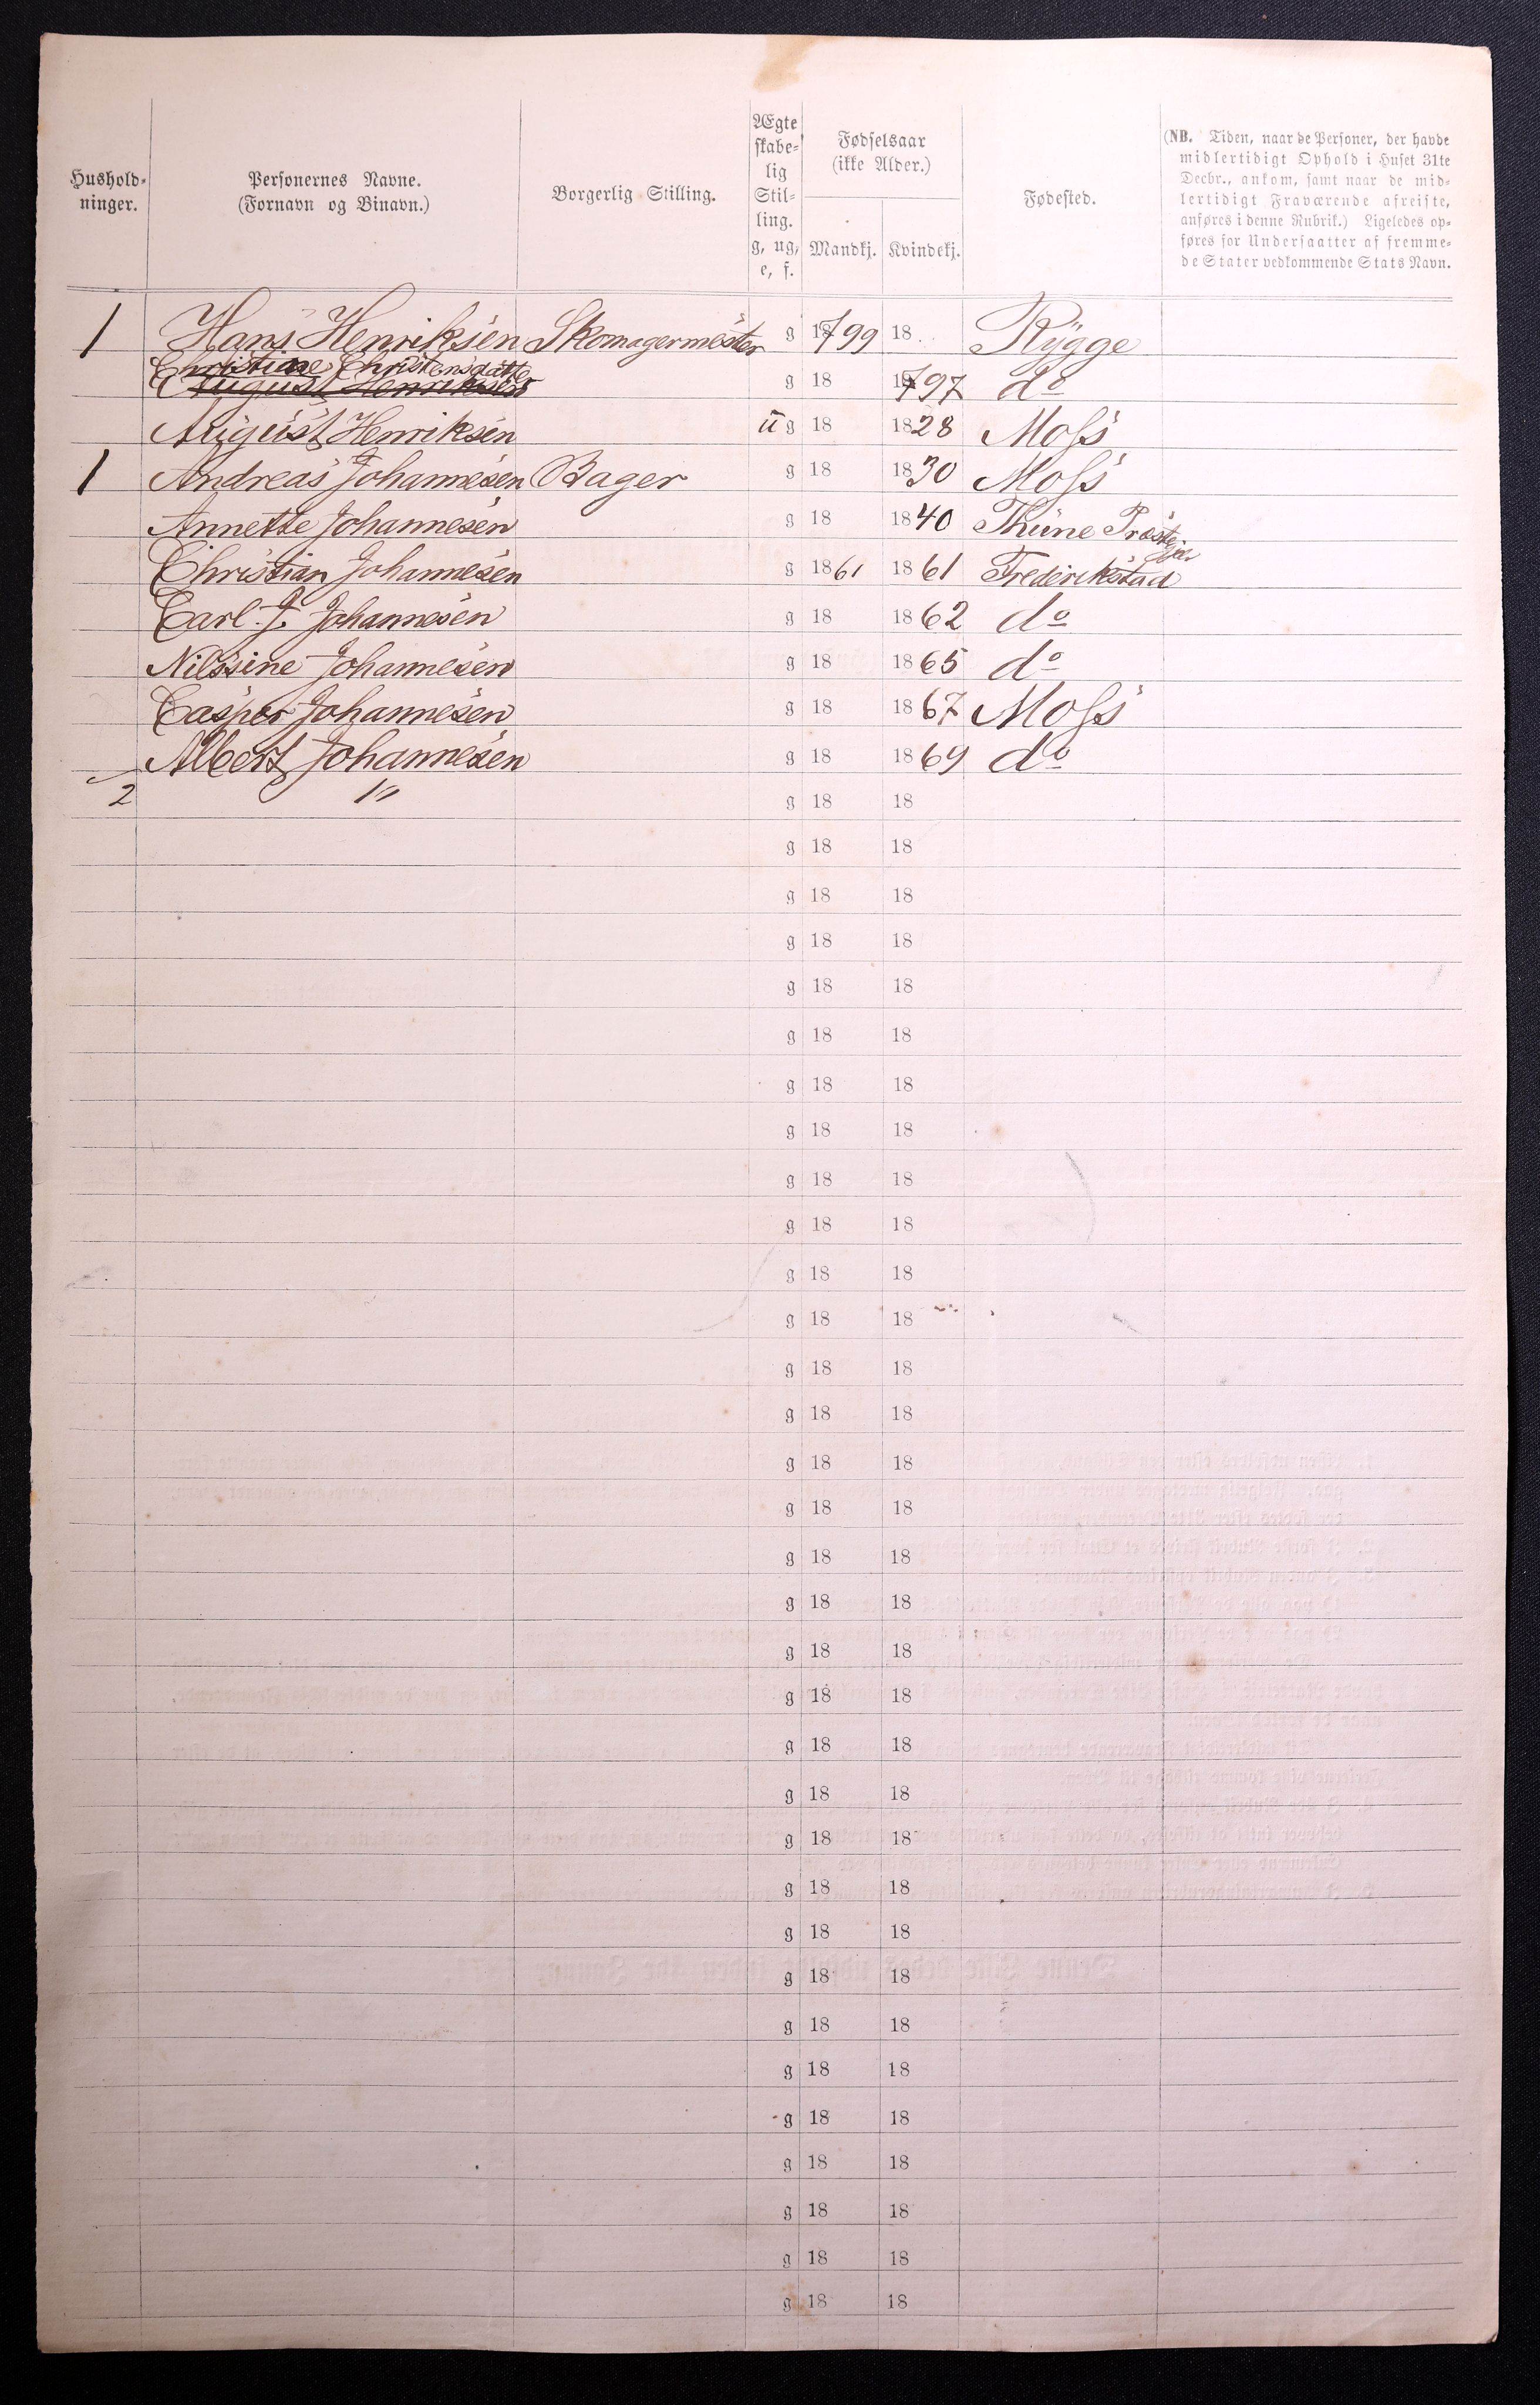 Hushold-
ninger.
Personernes Navne.
(Fornavn og Binavn.)
Borgerlig Stilling.
Ægte
skabe-
lig
Stil-
ling.
g, ug,
e, f.
Fødselsaar
(ikke Alder.)
Mandkj. Kvindekj.
Fødested.
(NB. Tiden, naar de Personer, der havde
midlertidigt Ophold i Huset 31te
Decbr., ankom, samt naar de mid-
lertidigt Fraværende afreiste,
anføres i denne Rubrik.) Ligeledes op-
føres for Undersaatter af fremme-
de Stater vedkommende Stats Navn.
1 Hans Henriksen Skomagermester g 1799 18 Rygge
Christiane Christensdatter
August Henriksen g 18 1797 do
August Henriksen ug 18 1828 Moss
1 Andreas Johannesen Bager g 18 1830 Moss
Annette Johannesen g 18 1840 Thune Præste
gjeld
Christian Johannesen g 1861 1861 Frederikstad
Carl. J. Johannesen g 18 1862 do
Nilssine Johannesen g 18 1865 do
Casper Johannesen g 18 1867 Moss
Albert Johannesen g 18 1869 do
2 10 g 18 18
g 18 18
g 18 18
g 18 18
g 18 18
g 18 18
g 18 18
g 18 18
g 18 18
g 18 18
g 18 18
g 18 18
g 18 18
g 18 18
g 18 18
g 18 18
g 18 18
g 18 18
g 18 18
g 18 18
g 18 18
g 18 18
g 18 18
g 18 18
g 18 18
g 18 18
g 18 18
g 18 18
g 18 18
g 18 18
g 18 18
g 18 18
g 18 18